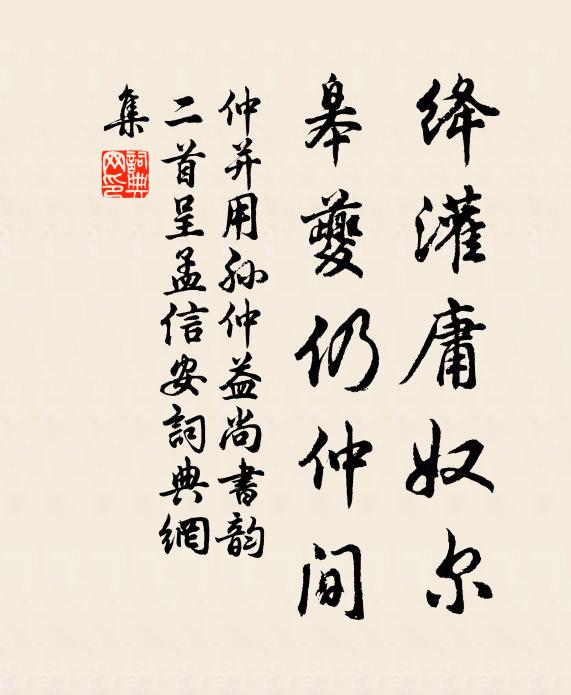 绛灌庸奴尔
皋夔仍仲间
仲并用孙仲益尚書韵
二首呈孟信安詞典網
集
詞典網印